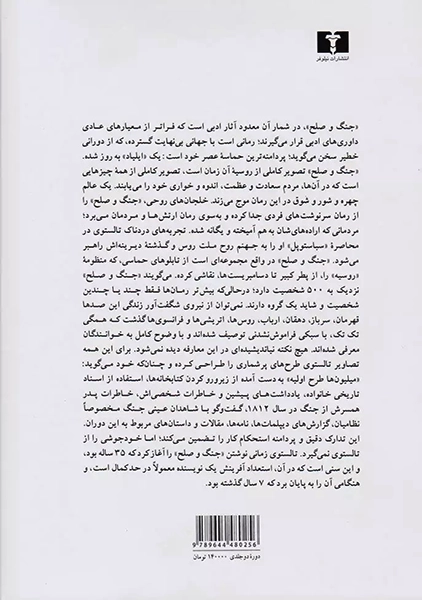 انتشارات نیلوفر
«جنگ و صلح»، در شمار آن معدود آثار ادبی است که فراتر از معیارهای عادی
داوری‌های ادبی قرار می‌گیرند؛ رمانی است با جهانی بی‌نهایت گسترده، که از دورانی
خطیر سخن می‌گوید؛ پردامنه‌ترین حماسهٔ عصر خود است: یک «ایلیاد» به روز شده.
«جنگ و صلح» تصویر کاملی از روسیهٔ آن زمان است، تصویر کاملی از همهٔ چیزهایی
است که در آن‌ها، مردم سعادت و عظمت، اندوه و خواری خود را می‌یابند. یک عالم
چهره و شور و شوق در این رمان موج می‌زند. خلجان‌های روحی، «جنگ و صلح» را
از رمان سرنوشت‌های فردی جدا کرده و به‌سوی رمان ارتش‌ها و مردمان می‌برد؛
مردمانی که اراده‌های‌شان به‌هم آمیخته و یگانه شده. تجربه‌های دردناک تالستوی در
محاصرهٔ «سباستوپل» او را به جهنم روح ملت روس و گذشتهٔ دیرینه‌اش راهبر
می‌شود. «جنگ و صلح» در واقع مجموعه‌ای است از تابلوهای حماسی، که منظومهٔ
«روسیه» را، از پطر کبیر تا دسامبریست‌ها، نقاشی کرده. می‌گویند «جنگ و صلح»
نزدیک به ۵۰۰ شخصیت دارد؛ درحالی‌که بیش‌تر رمان‌ها فقط چند یا چندین
شخصیت و شاید یک گروه دارند. نمی‌توان از نیروی شگفت‌آور زندگی این صدها
قهرمان، سرباز، دهقان، ارباب، روس‌ها، اتریشی‌ها و فرانسوی‌ها گذشت که همگی
تک تک، با سبکی فراموش‌نشدنی توصیف شده‌اند و با وضوح کامل به خوانندگان
معرفی شده‌اند. هیچ نکته نیاندیشیده‌ای در این معارفه دیده نمی‌شود. برای این همه
تصاویر تالستوی طرح‌های پرشماری را طراحی کرده و چنان‌که خود می‌گوید:
«میلیون‌ها طرح اولیه» به‌دست آمده از زیرورو کردن کتابخانه‌ها، استفاده از اسناد
تاریخی خانواده، یادداشت‌های پیشین و خاطرات شخصی‌اش، خاطرات پدر
همسرش از جنگ در سال ۱۸۱۲، گفت‌وگو با شاهدان عینی جنگ مخصوصاً
نظامیان، گزارش‌های دیپلمات‌ها، نامه‌ها، مقالات و داستان‌های مربوط به این دوران.
این تدارک دقیق و پردامنه استحکام کار را تضمین می‌کند؛ اما خودجوشی را از
تالستوی نمی‌گیرد. تالستوی زمانی نوشتن «جنگ و صلح» را آغاز کرد که ۳۵ ساله بود،
و این سنی است که در آن، استعداد آفرینش یک نویسنده معمولاً در حدکمال است، و
هنگامی آن را به پایان برد که ۷ سال گذشته بود.
9 789644 480256
دورهٔ دوجلدی ۱۴۰۰۰۰ تومان